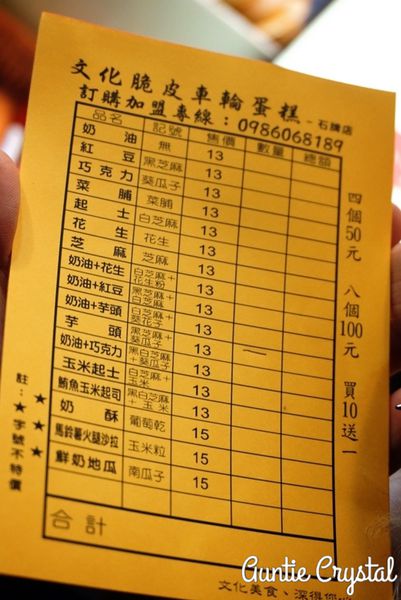 文化脆皮車輪蛋糕 - 石牌店
訂購加盟專線：0986068189
品名 記號 售價 數量 總額
奶油 無 13
紅豆 黑芝麻 13
巧克力 葵瓜子 13
菜脯 菜脯 13
起士 白芝麻 13
花生 花生 13
芝麻 芝麻 13
奶油+花生 白芝麻+花生粉 13
奶油+紅豆 黑芝麻+白芝麻 13
奶油+芋頭 白芝麻+葵花子 13
芋頭 黑芝麻+葵瓜子 13
奶油+巧克力 黑白芝麻+葵瓜子 13
玉米起士 白芝麻+玉米 13
鮪魚玉米起司 黑白芝麻+玉米 13
★ 奶酥 葡萄乾 15
★ 馬鈴薯火腿沙拉 玉米粒 15
★ 鮮奶地瓜 南瓜子 15
合計
四個50元 八個100元 買10送一
註：★字號不特價
文化美食、深得你
Auntie Crystal